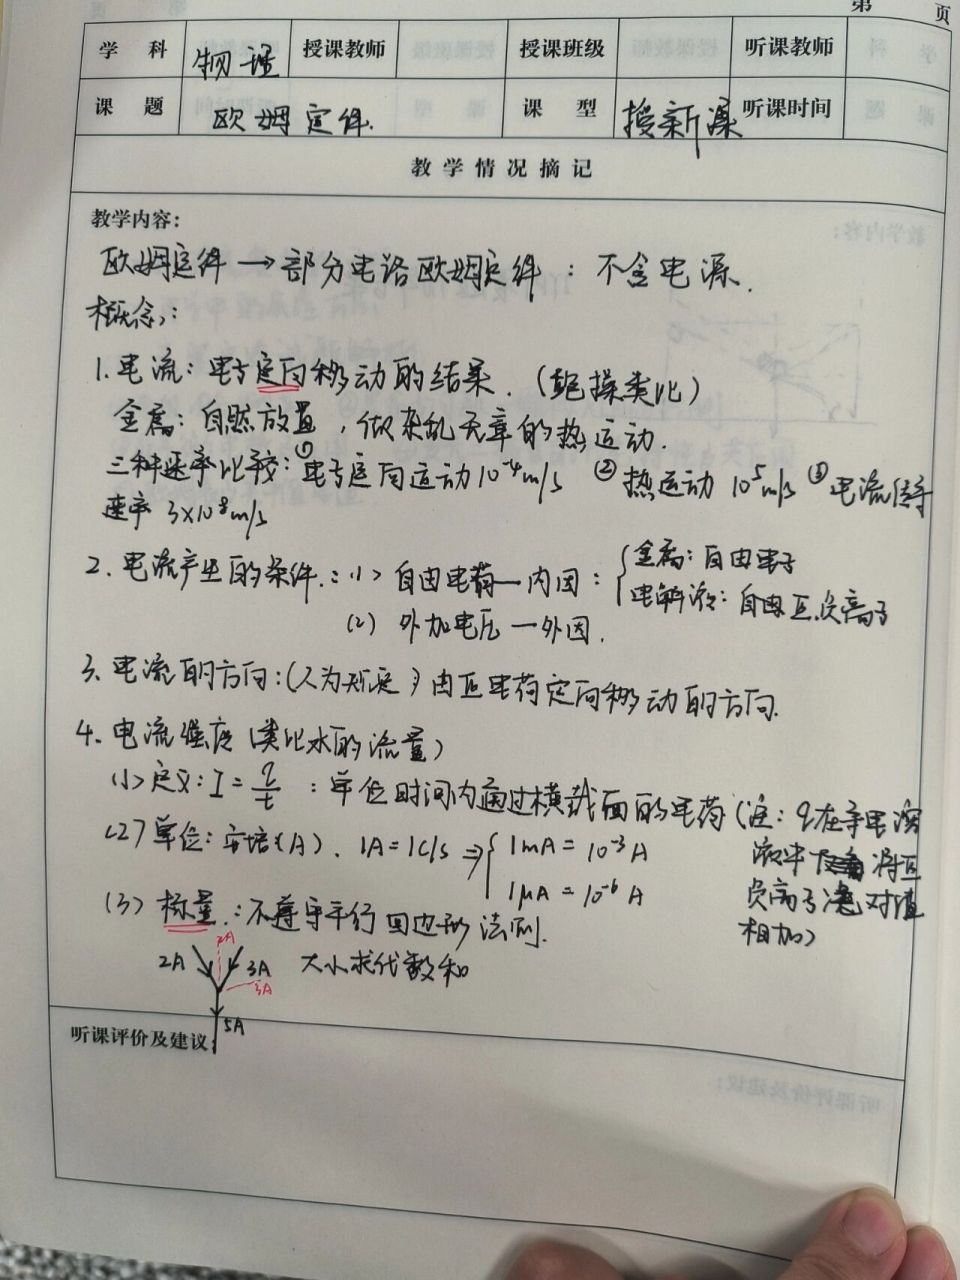 第 页
学 科 物理 授课教师 授课班级 听课教师
课 题 欧姆定律. 课 型 授新课 听课时间
教 学 情 况 摘 记
教学内容:
欧姆定律 → 部分电路欧姆定律 : 不含电源.
概念:
1. 电流: 电子定向移动的结果. (跑操类比)
金属: 自然放置, 做杂乱无章的热运动.
三种速率比较: ① 电子定向运动 10⁻⁴m/s ② 热运动 10⁵m/s ③ 电流传导
速率 3×10⁸m/s
2. 电流产生的条件: (1) 自由电荷—内因: { 金属: 自由电子
电解液: 自由正.负离子
(2) 外加电压—外因.
3. 电流的方向: (人为规定) 由正电荷定向移动的方向.
4. 电流强度 (类比水的流量)
(1) 定义: I = q/t : 单位时间内通过横截面的电荷 (注: q在导电溶
液中 将正
负离子绝对值
相加)
(2) 单位: 安培 (A). 1A = 1C/s ⇒ { 1mA = 10⁻³A
1μA = 10⁻⁶ A
(3) 标量: 不遵守平行四边形法则.
2A
2A 3A 大小求代数和
3A
5A
听课评价及建议: